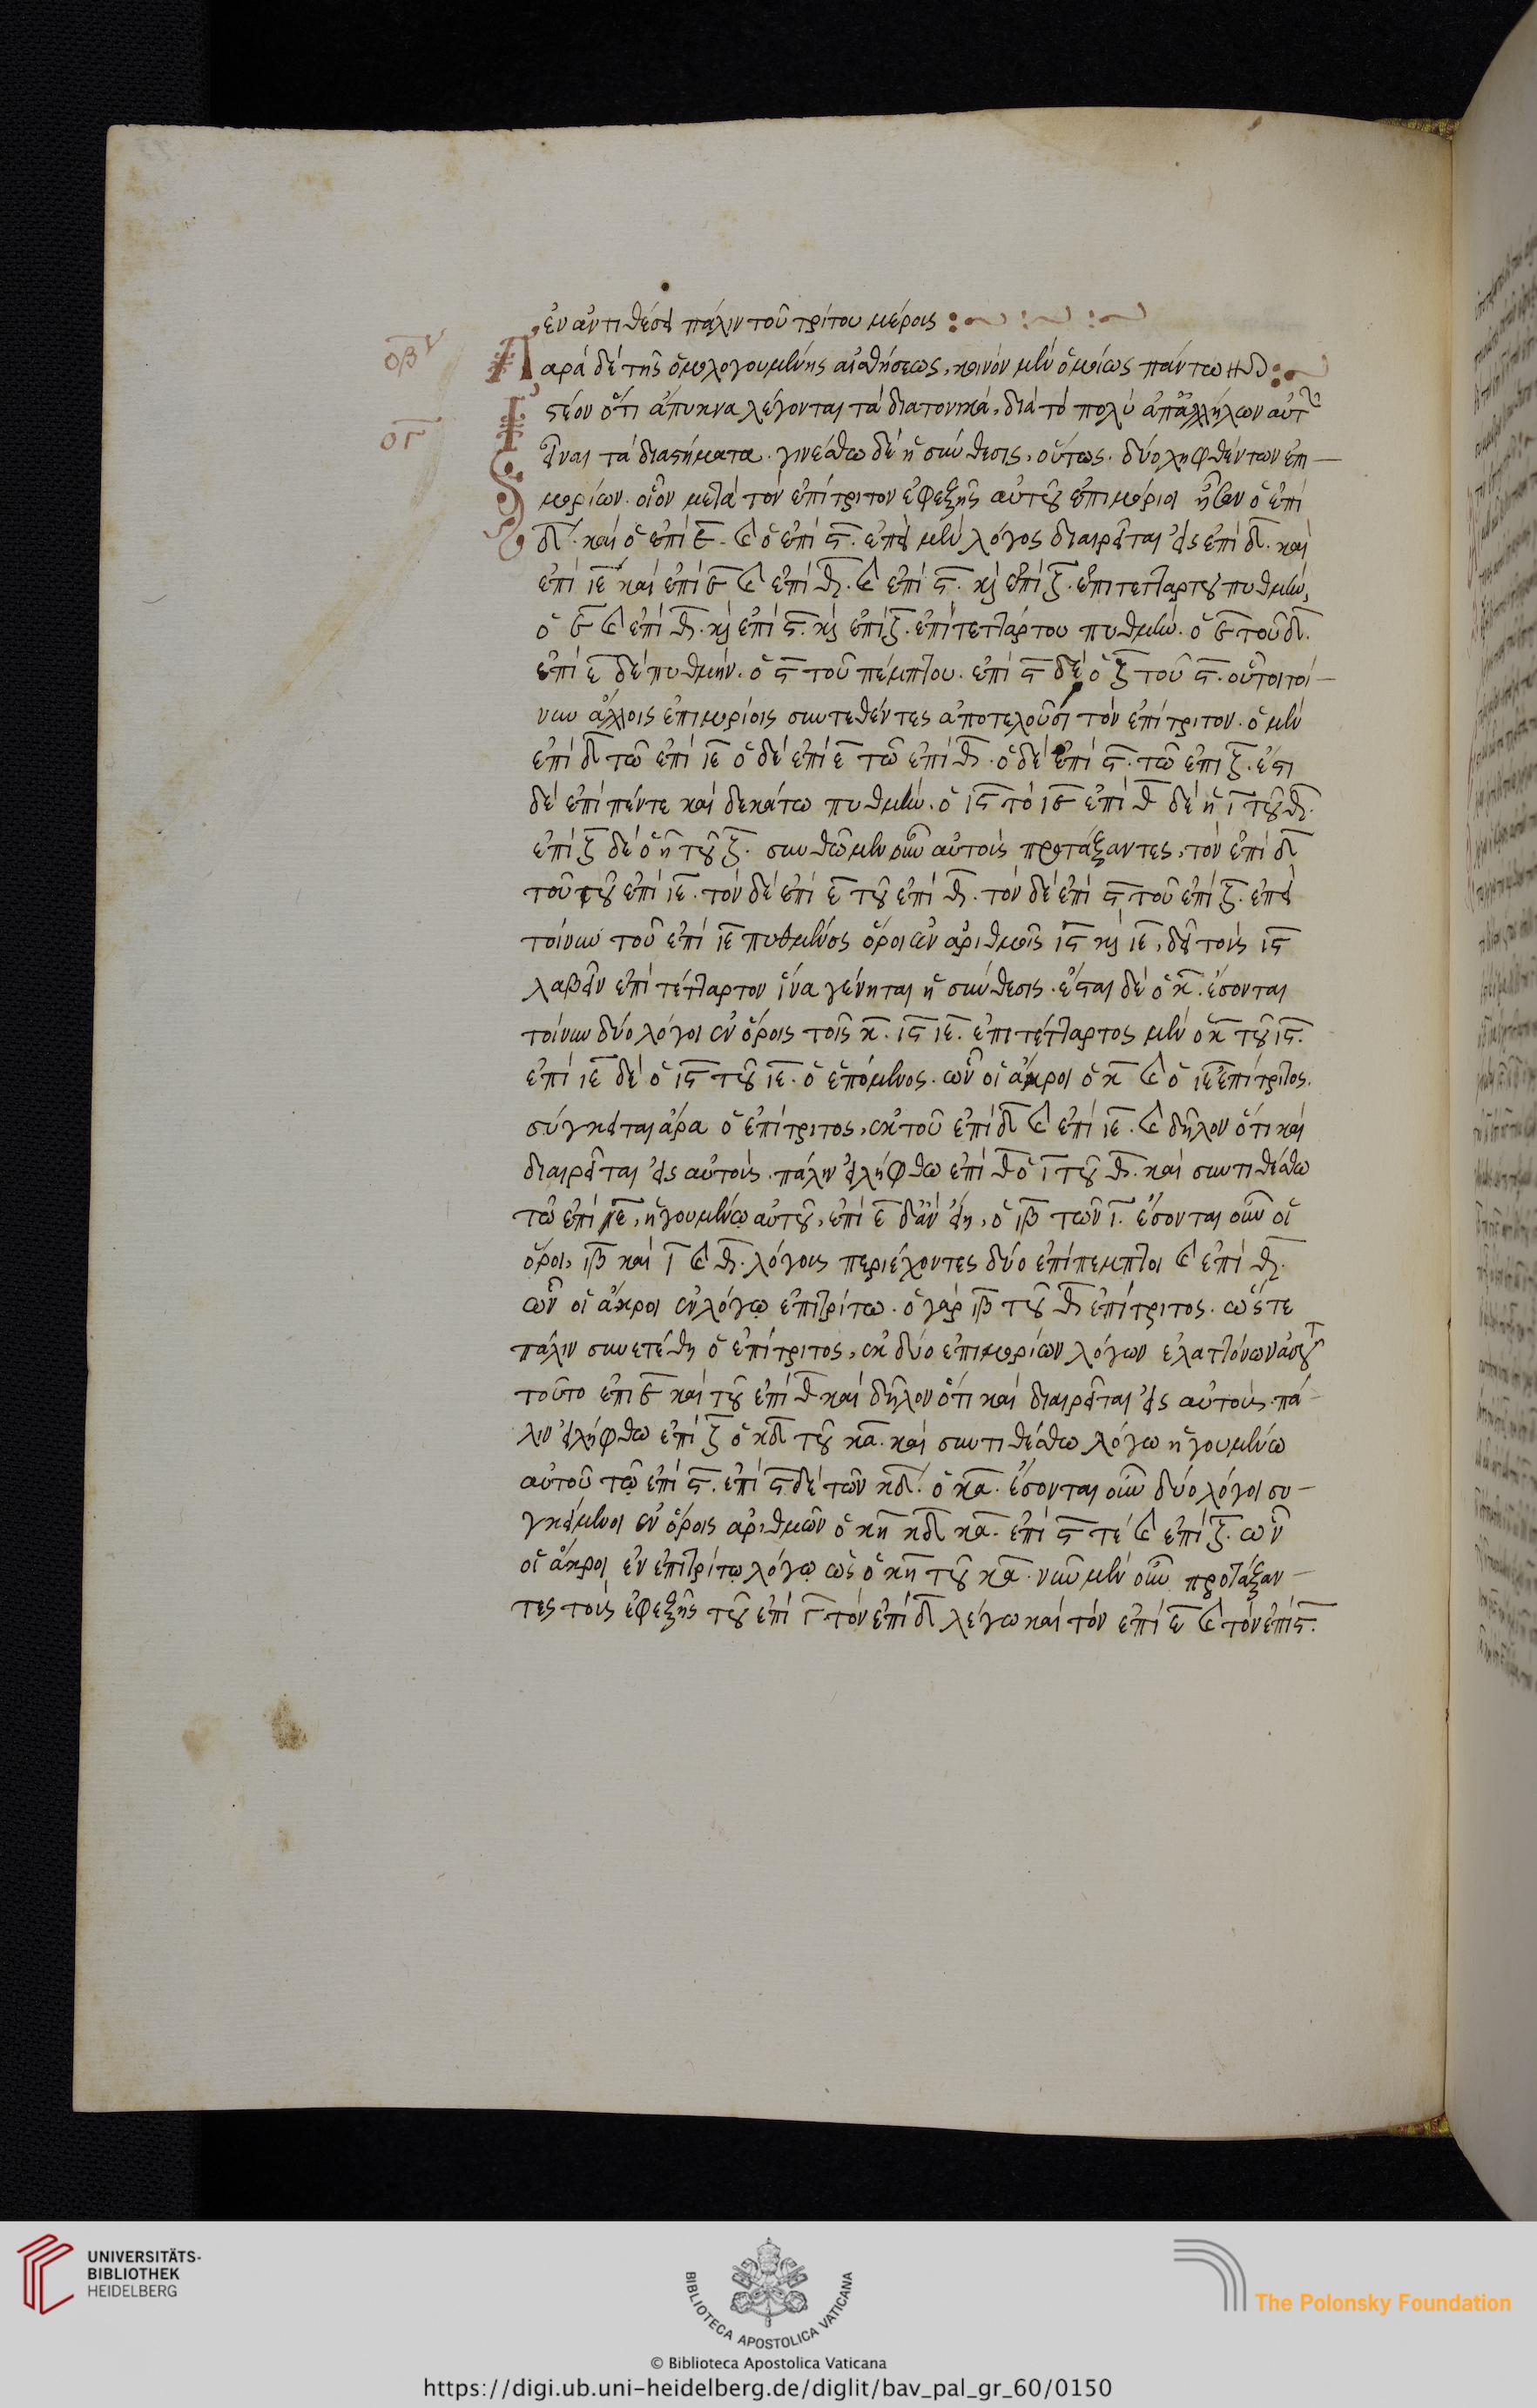 ἐν ἀντιθέσει πάλιν τοῦ τρίτου μέρους
οβ
Παρὰ δὲ τῆς ὁμολογουμένης αἰσθήσεως, κοινὸν μὲν ὁμοίως πάντων
ογ
Ἰστέον ὅτι ἄπυκνα λέγονται τὰ διατονικὰ, διὰ τὸ πολὺ ἀπ᾽ἀλλήλων αὐτῶν
εἶναι τὰ διαστήματα. γινέσθω δὲ ἡ σύνθεσις, οὕτως. δύο ληφθέντων ἐπι
μορίων. οἷον μετὰ τὸν ἐπίτριτον ἐφεξῆς αὐτοῦ ἐπιμόριοι ἦσαν ὁ ἐπὶ
δ. καὶ ὁ ἐπὶ ε. καὶ ὁ ἐπὶ ϛ. ἐπεὶ μὲν λόγος διαιρεῖται εἰς ἐπὶ δ. καὶ
ἐπὶ ιε καὶ ἐπὶ ε καὶ ἐπὶ θ. καὶ ἐπὶ ϛ. καὶ ἐπὶ ζ. ἐπιτετάρτου πυθμὴν,
ὁ ε καὶ ἐπὶ θ. καὶ ἐπὶ ϛ. καὶ ἐπὶ ζ. ἐπιτετάρτου πυθμὴν. ὁ ε τοῦ δ.
ἐπὶ ε δὲ πυθμήν. ὁ ϛ τοῦ πέμπτου. ἐπὶ ϛ δὲ ὁ ζ τοῦ ϛ. οὗτοι τοί
νυν ἄλλοις ἐπιμορίοις συντεθέντες ἀποτελοῦσι τὸν ἐπίτριτον. ὁ μὲν
ἐπὶ δ τῶ ἐπὶ ιε ὁ δὲ ἐπὶ ε τῶ ἐπὶ θ. ὁ δὲ ἐπὶ ϛ. τῶ ἐπι ζ. ἔστι
δὲ ἐπὶ πέντε καὶ δεκάτω πυθμὴν. ὁ ιϛ τὸ ιε ἐπὶ θ δὲ ἡ ι τοῦ θ.
ἐπὶ ζ δὲ ὁ η τοῦ ζ. συνθῶμεν οὖν αὐτοὺς προτάξαντες, τὸν ἐπὶ δ
τοῦ τοῦ ἐπὶ ιε. τὸν δὲ ἐπὶ ε τοῦ ἐπὶ θ. τὸν δὲ ἐπὶ ϛ τοῦ ἐπὶ ζ. ἐπεὶ
τοίνυν τοῦ ἐπὶ ιε πυθμένος ὅροι ἐν ἀριθμοῖς ιϛ καὶ ιε, δεῖ τοὺς ιϛ
λαβεῖν ἐπιτέταρτον ἵνα γένηται ἡ σύνθεσις. ἔσται δὲ ὁ κ. ἔσονται
τοίνυν δύο λόγοι ἐν ὅροις τοῖς κ. ιϛ ιε. ἐπιτέταρτος μὲν ὁ κ τοῦ ιϛ.
ἐπὶ ιε δὲ ὁ ιϛ τοῦ ιε. ὁ ἑπόμενος. ὧν οἱ ἄκροι ὁ κ καὶ ὁ ιε ἐπίτριτος.
σύγκειται ἄρα ὁ ἐπίτριτος, ἐκ τοῦ ἐπὶ δ καὶ ἐπὶ ιε. καὶ δῆλον ὅτι καὶ
διαιρεῖται εἰς αὐτοὺς. πάλιν εἰλήφθω ἐπὶ θ ὁ ι τοῦ θ. καὶ συντιθέσθω
τῶ ἐπὶ ε, ἡγουμένῳ αὐτοῦ, ἐπὶ ε δ᾽ἂν εἴη, ὁ ιβ τῶν ι. ἔσονται οὖν οἱ
ὅροι, ιβ καὶ ι καὶ θ. λόγους περιέχοντες δύο ἐπίπεμπτοι καὶ ἐπὶ θ.
ὧν οἱ ἄκροι ἐν λόγῳ ἐπιτρίτω. ὁ γὰρ ιβ τοῦ θ ἐπίτριτος. ὥστε
πάλιν συνετέθη ὁ ἐπίτριτος, ἐκ δύο ἐπιμορίων λόγων ἐλαττόνων
τοῦτο ἐπὶ ε καὶ τοῦ ἐπὶ θ καὶ δῆλον ὅτι καὶ διαιρεῖται εἰς αὐτοὺς. πά
λιν εἰλήφθω ἐπὶ ζ ὁ κδ τοῦ κα. καὶ συντιθέσθω λόγω ἡγουμένω
αὐτοῦ τῷ ἐπὶ ϛ. ἐπὶ ϛ δὲ τῶν κδ. ὁ κα. ἔσονται οὖν δύο λόγοι συ
γκείμενοι ἐν ὅροις ἀριθμῶν ὁ κη κδ κα. ἐπὶ ϛ τὲ καὶ ἐπὶ ζ. ὧν
οἱ ἄκροι ἐν ἐπιτρίτῳ λόγῳ ὡς ὁ κη τοῦ κα. νῦν μὲν οὖν προτάξαν
τες τοὺς ἐφεξῆς τοῦ ἐπὶ γ τὸν ἐπὶ δ λέγω καὶ τὸν ἐπὶ ε καὶ τὸν ἐπὶ ϛ.
UNIVERSITÄTS-
BIBLIOTHEK
HEIDELBERG
BIBLIOTECA APOSTOLICA VATICANA
The Polonsky Foundation
© Biblioteca Apostolica Vaticana
https://digi.ub.uni-heidelberg.de/diglit/bav_pal_gr_60/0150